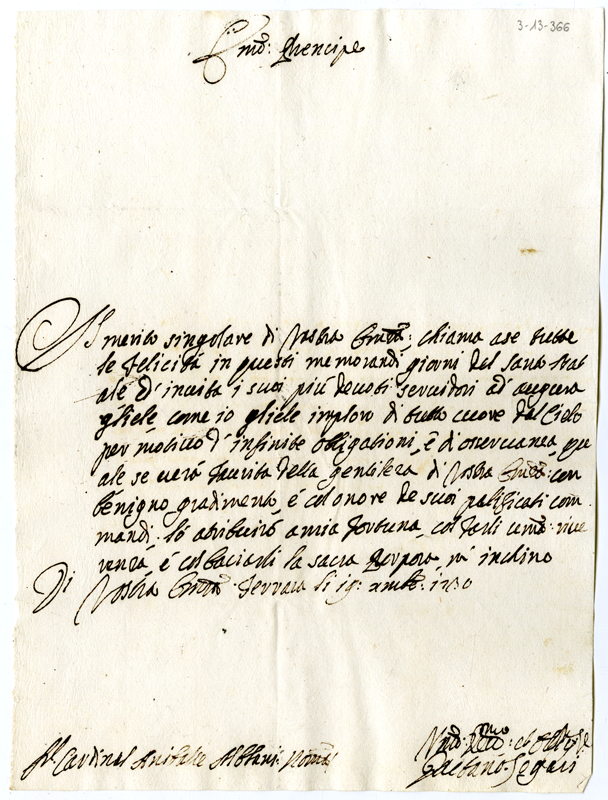 3-13-366
Emo: Prencipe
Il merito singolare di Vostra Emza: chiama a se tutte
le felicità in questi memorandi giorni del Santo Nat
ale é invita i suoi più devoti servidori ad augura
gliele come io gliele imploro di tutto cuore dal Cielo
per motivo d' infinite obligationi, é d'osservanza, qu
ale se verà favrita della gentileza di Vostra Emza: con
benigno gradimento, é col onore de suoi palificati com
mandi. ló atribuiró a mia fortuna, col farli uma: rive
renza, é col baciarli la sacra Porpora, mi inchino
Di Vostra Emza Ferrara li 19: xmbe: 1730
Sr. Cardinal Anibale Albani: Roma
Gaetano Segari